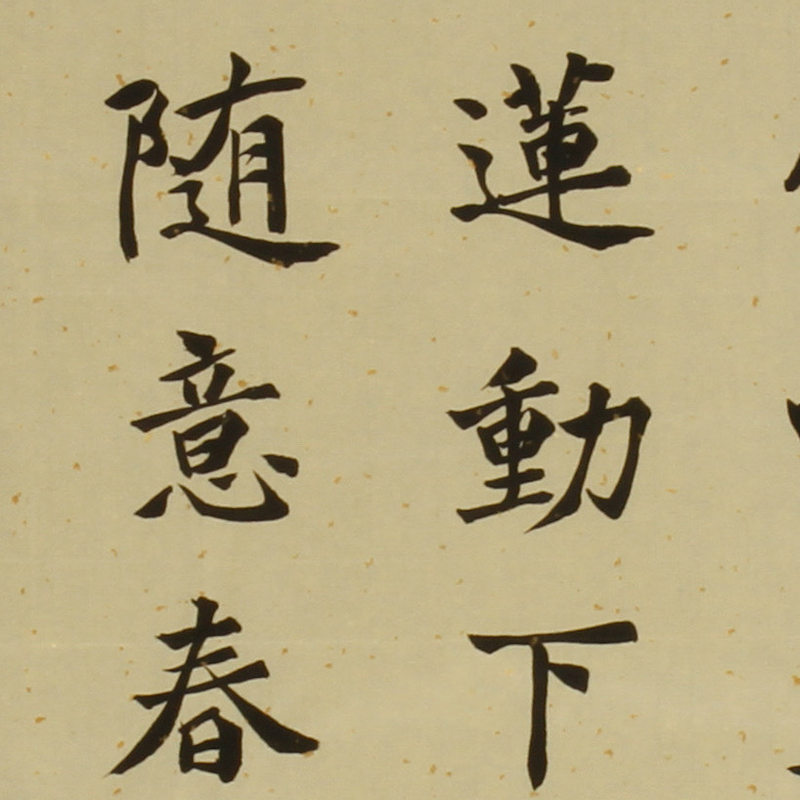 蓮動下
随意春